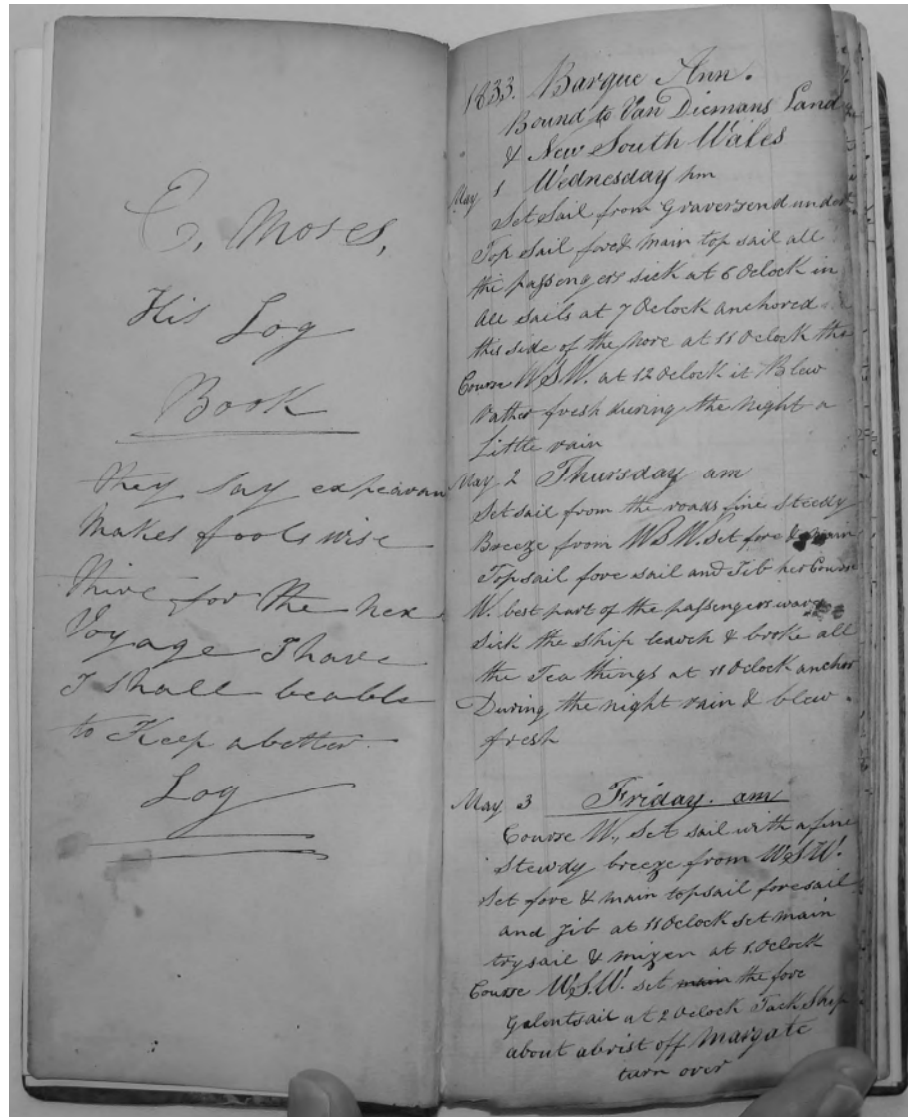 E, Moses,
His Log
Book
they say expearan
Makes fools wise
thire for the nex
Voyage I have
I shall beable
to Keep a better
Log
1833. Barque Ann.
Bound to Van Diemans Land
& New South Wales
May 1 Wednesday pm
Set Sail from Graversend under
Top Sail fore & main top sail all
the passengers sick at 6 Oclock in
all sails at 7 Oclock anchored
this side of the Nore at 11 Oclock the
Course W.S.W. at 12 Oclock it Blew
Rather fresh during the Night a
Little rain
May 2 Thursday am
Set sail from the roads fine Steedy
Breeze from W.S.W. set fore & main
Topsail fore sail and Jib her Course
W. best part of the passengers ware
Sick the ship & broke all
the Tea things at 11 Oclock anchor
During the night rain & blew
fresh
May 3 Friday. am
Course W., Set sail with a fine
Steady breeze from W.S.W.
Set fore & main topsail foresail
and Jib at 11 Oclock set main
trysail & mizen at 1. Oclock
Course W.S.W. set main the fore
Galentsail at 2 Oclock Tack Ship
about abrist off Margate
turn over